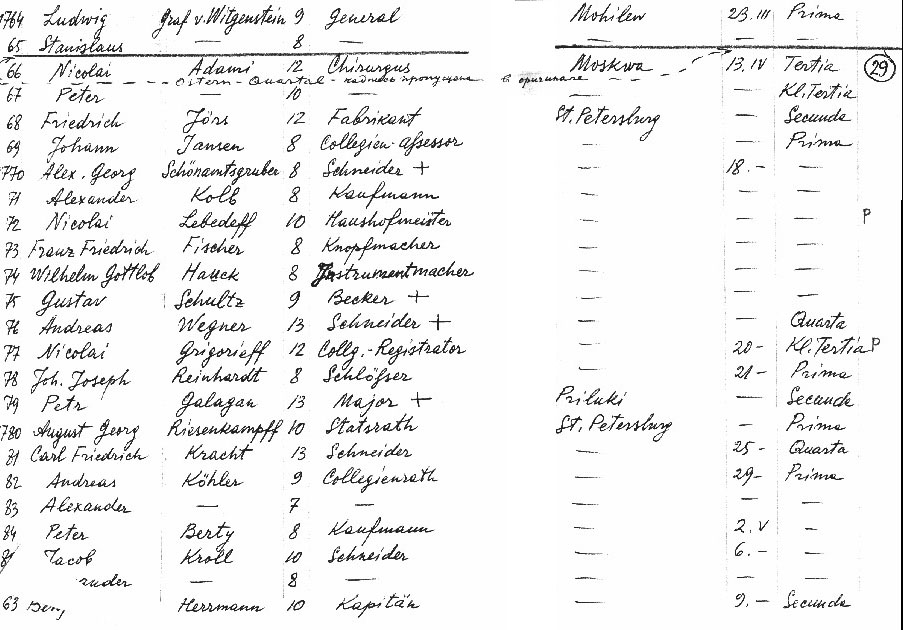 1764 Ludwig Graf v. Witgenstein 9 General Mohilew 23. III Prima
65 Stanislaus — 8 — — — —
66 Nicolai Adami 12 Chirurgus Moskwa 13. IV Tertia 29
Ostern-Quartal - надпись пропущена в оригинале
67 Peter — 10 — — — Kl. Tertia
68 Friedrich Jörs 12 Fabrikant St. Petersburg — Secunda
69 Johann Jansen 8 Collegien-Assessor — — Prima
1770 Alex. Georg Schönamtsgruber 8 Schneider + — 18. — —
71 Alexander Kolb 8 Kaufmann — — —
72 Nicolai Lebedeff 10 Haushofmeister — — — P
73 Franz Friedrich Fischer 8 Knopfmacher — — —
74 Wilhelm Gottlob Hauck 8 Instrumentmacher — — —
75 Gustav Schultz 9 Becker + — — —
76 Andreas Wegner 13 Schneider + — — Quarta
77 Nicolai Grigorieff 12 Collg.-Registrator — 20 - Kl. Tertia P
78 Joh. Joseph Reinhardt 8 Schlösser — 21 - Prima
79 Petr Galagan 13 Major + Priluki — Secunda
1780 August Georg Riesenkampff 10 Statsrath St. Petersburg — Prima
81 Carl Friedrich Kracht 13 Schneider — 25 - Quarta
82 Andreas Köhler 9 Collegienrath — 29 - Prima
83 Alexander — 7 — — — —
84 Peter Berty 8 Kaufmann — 2. V —
Jacob Kroll 10 Schneider — 6. — —
— 8 — — — —
63 Herrmann 10 Kapitän — 9. — Secunda